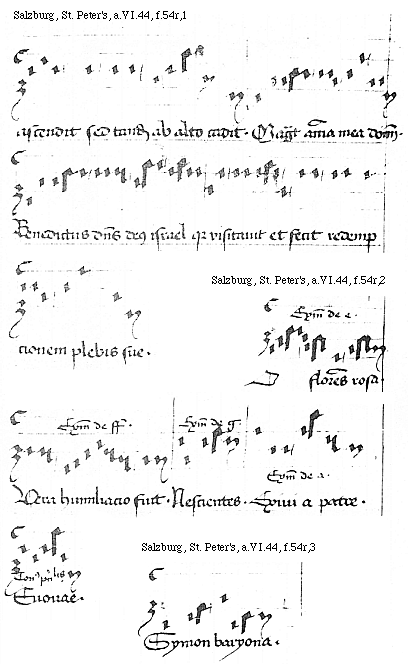 Salzburg, St. Peter's, a.VI.44, f.54r,1
ascendit sed tandem ab alto cadit. Magt aīa mea dom̄
Benedictus dn̄s deus israel qr visitauit et fecit redemp
cionem plebis sue.
Salzburg, St. Peter's, a.VI.44, f.54r,2
Exm̄ de e.
flores rosa
Exm̄ de ff. Exm̄ de g
Vera humiliacio fuit. Nescientes. Exiui a patre.
Exm̄ de a.
Euouae.
Salzburg, St. Peter's, a.VI.44, f.54r,3
Symon baryona.